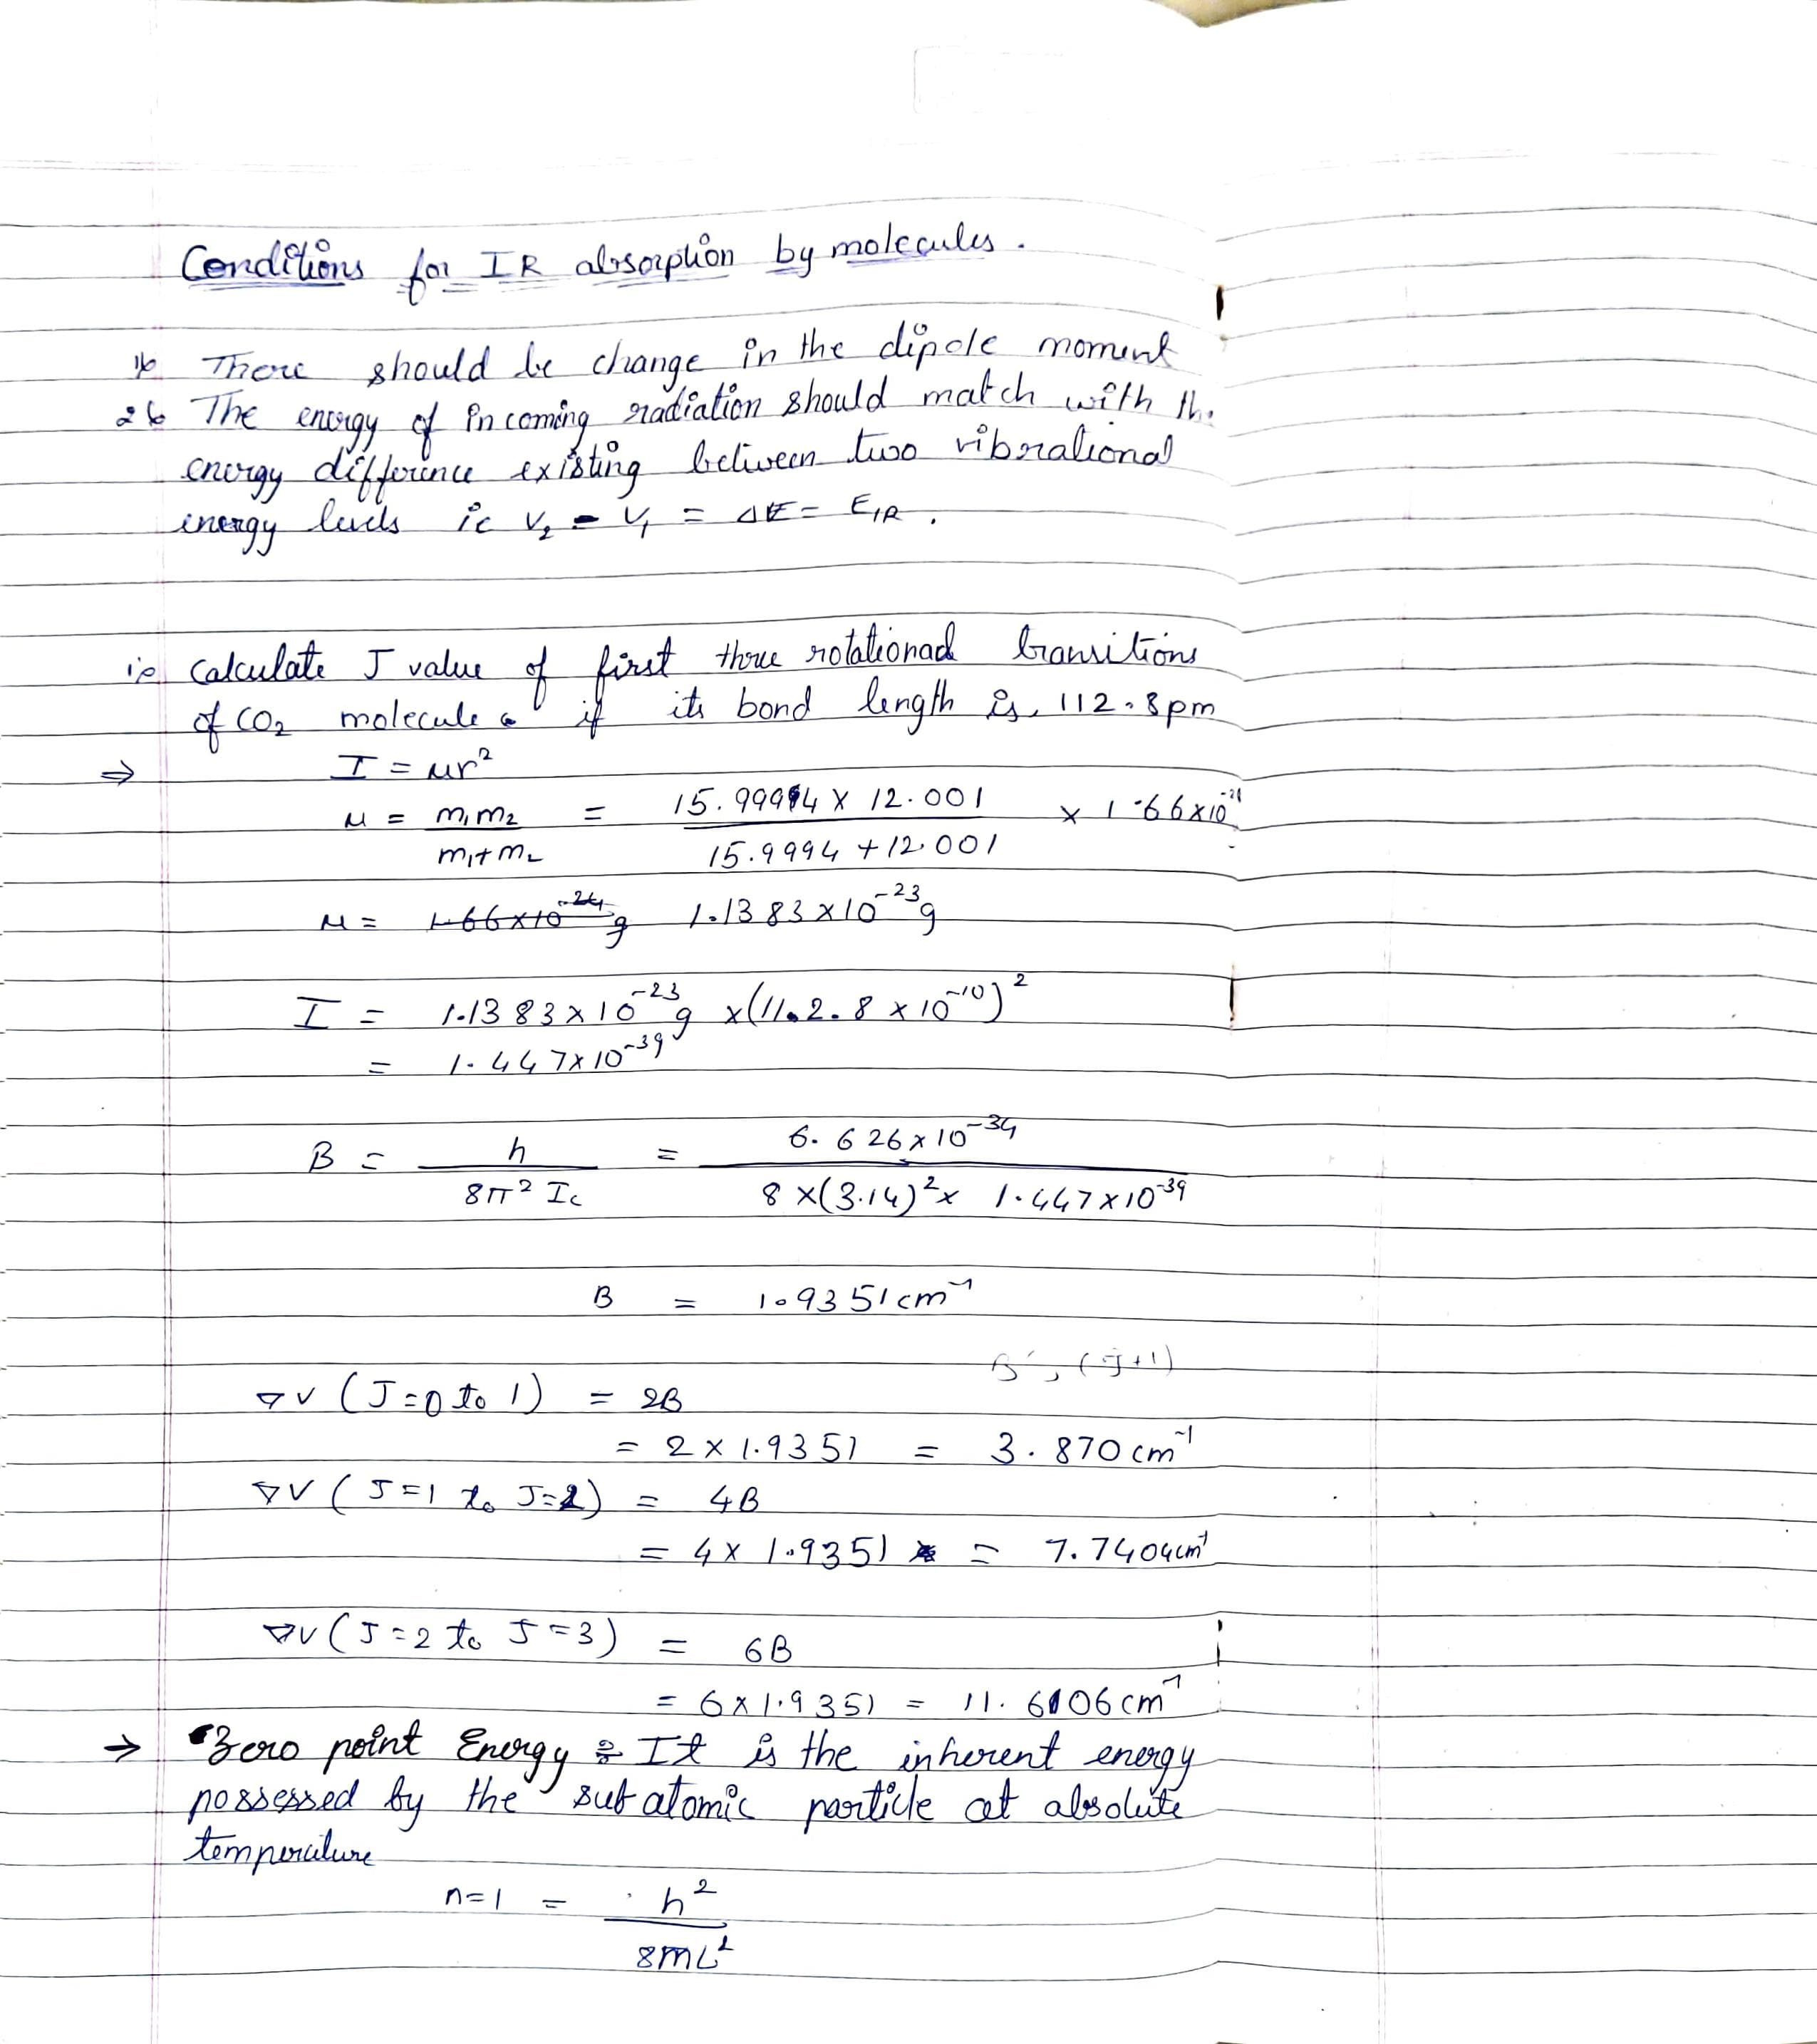 Conditions for IR absorption by molecules.
1) There should be change in the dipole moment
2) The energy of incoming radiation should match with the
energy difference existing between two vibrational
energy levels ie V₂ - V₁ = ΔE = E_IR.
1) Calculate J value of first three rotational transitions
of CO₂ molecule if its bond length is 112.8pm
⇒ I = μr²
μ = m₁m₂ / m₁+m₂ = 15.9994 × 12.001 / 15.9994 + 12.001 × 1.66×10⁻²⁴
μ = 1.66×10⁻²⁴ g 1.1383×10⁻²³g
I = 1.1383×10⁻²³g ×(11.2.8 × 10⁻¹⁰)²
= 1.447×10⁻³⁹
B = h / 8π² Ic = 6.626×10⁻³⁴ / 8×(3.14)²× 1.447×10⁻³⁹
B = 1.9351cm⁻¹
(J+1)
∇v (J=0 to 1) = 2B
= 2 × 1.9351 = 3.870cm⁻¹
∇v (J=1 to J=2) = 4B
= 4× 1.9351 = 7.7404cm⁻¹
∇v (J=2 to J=3) = 6B
= 6×1.9351 = 11.6106cm⁻¹
→ Zero point Energy : It is the inherent energy
possessed by the sub atomic particle at absolute
temperature
n=1 = h² / 8mL²